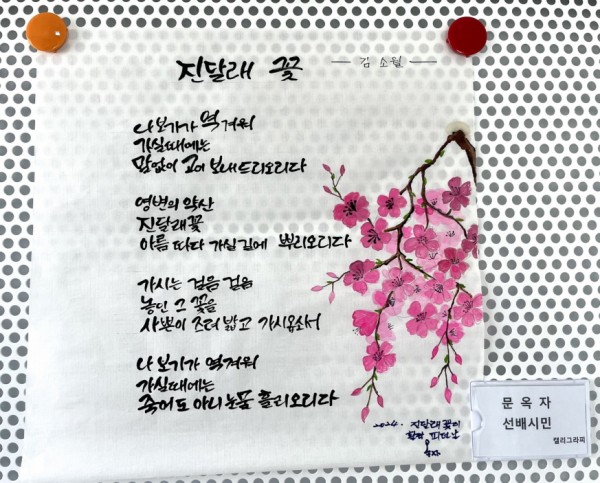 진달래 꽃
김 소월
나 보기가 역겨워
가실때에는
말없이 고이 보내드리오리다
영변의 약산
진달래꽃
아름 따다 가실 길에 뿌리오리다
가시는 걸음 걸음
놓인 그 꽃을
사뿐이 즈려 밟고 가시옵소서
나 보기가 역겨워
가실때에는
죽어도 아니 눈물 흘리오리다
2024. 진달래 꽃이
피던 날
옥자
문 옥 자
선배시민
캘리그라피